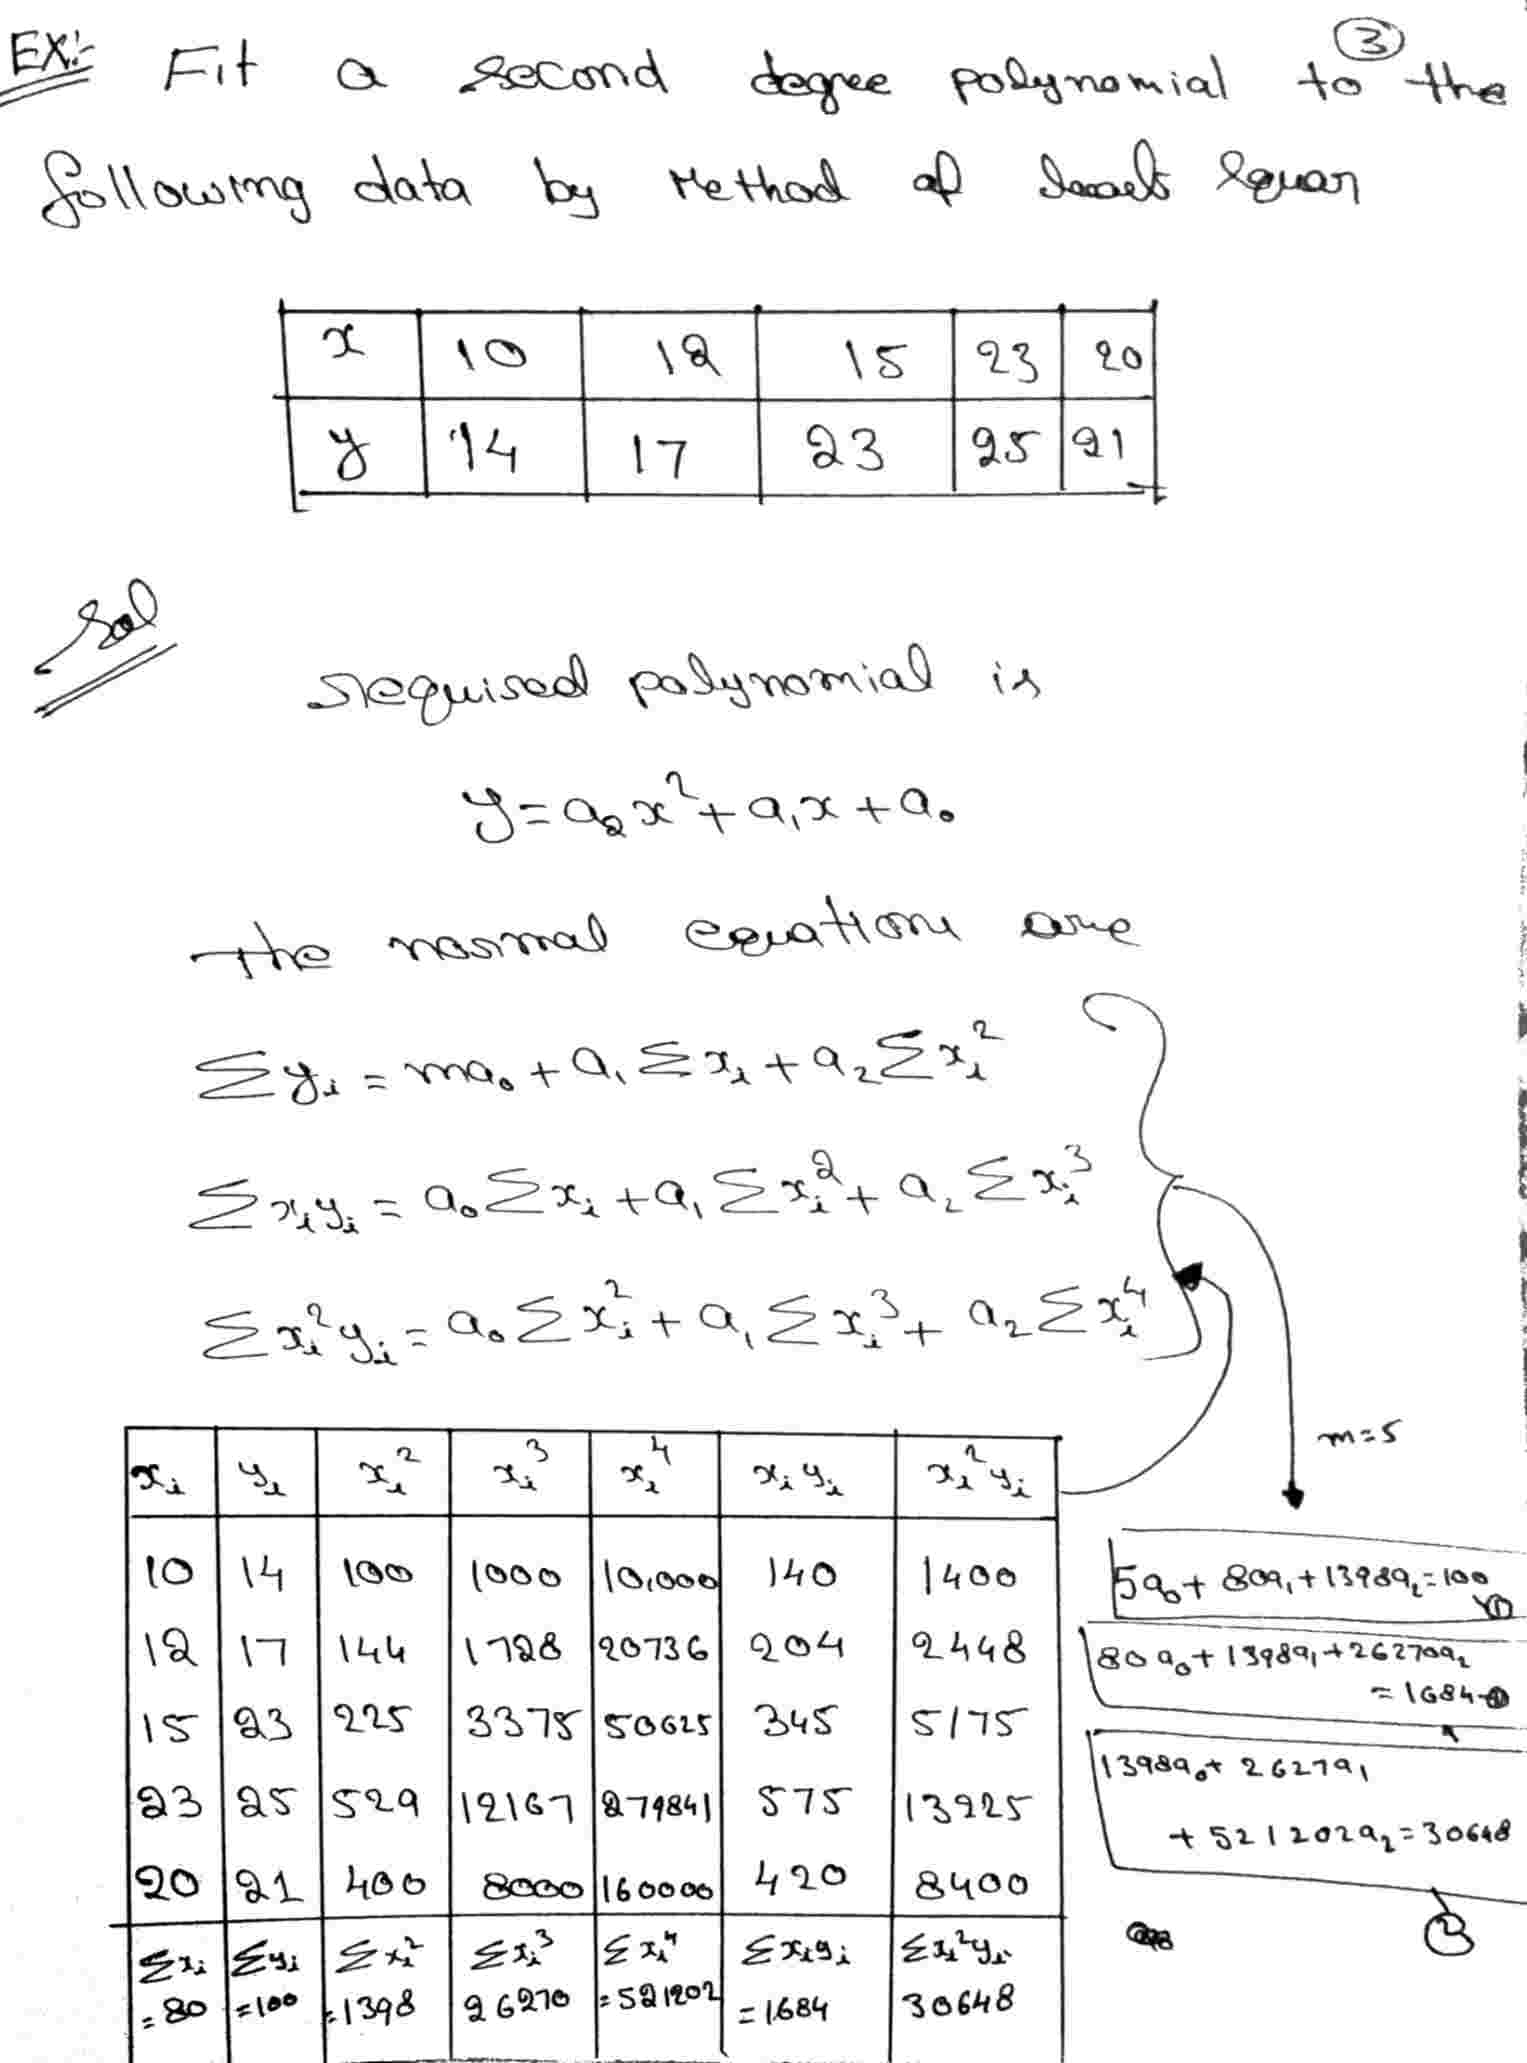 ③
EX:- Fit a second degree polynomial to the
following data by Method of Squar
x 10 12 15 23 20
y 14 17 23 25 21
Sol
required polynomial is
y = a₂x² + a₁x + a₀
the normal equations are
Σyᵢ = ma₀ + a₁Σxᵢ + a₂Σxᵢ²
Σxᵢyᵢ = a₀Σxᵢ + a₁Σxᵢ² + a₂Σxᵢ³
Σxᵢ²yᵢ = a₀Σxᵢ² + a₁Σxᵢ³ + a₂Σxᵢ⁴
m=5
xᵢ yᵢ xᵢ² xᵢ³ xᵢ⁴ xᵢyᵢ xᵢ²yᵢ
10 14 100 1000 10,000 140 1400
12 17 144 1728 20736 204 2448
15 23 225 3375 50625 345 5175
23 25 529 12167 279841 575 13225
20 21 400 8000 160000 420 8400
Σxᵢ Σyᵢ Σxᵢ² Σxᵢ³ Σxᵢ⁴ Σxᵢyᵢ Σxᵢ²yᵢ
=80 =100 =1398 26270 =521202 =1684 30648
5a₀ + 80a₁ + 1398a₂ = 100
①
80a₀ + 1398a₁ + 26270a₂
= 1684-②
1398a₀ + 2627a₁
+ 521202a₂ = 30648